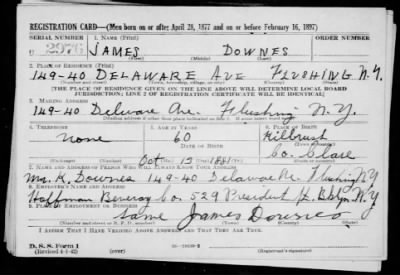 REGISTRATION CARD—(Men born on or after April 28, 1877 and on or before February 16, 1897)
SERIAL NUMBER 1. NAME (Print) ORDER NUMBER
U 2976 JAMES DOWNES
(First) (Middle) (Last)
2. PLACE OF RESIDENCE (Print)
149-40 DELAWARE AVE FLUSHING N.Y.
(Number and street) (Town, township, village, or city) (County) (State)
[THE PLACE OF RESIDENCE GIVEN ON THE LINE ABOVE WILL DETERMINE LOCAL BOARD
JURISDICTION; LINE 2 OF REGISTRATION CERTIFICATE WILL BE IDENTICAL]
3. MAILING ADDRESS
149-40 Delware Ave. Flushing N.Y.
4. TELEPHONE 5. AGE IN YEARS 6. PLACE OF BIRTH
none 60 Kilbrush
DATE OF BIRTH Co. Clare
Oct 12
7. NAME AND ADDRESS OF PERSON WHO WILL ALWAYS KNOW YOUR ADDRESS
Mrs. K. Downes 149-40 Delaware Ave. Flushing N.Y
8. EMPLOYER'S NAME AND ADDRESS
Hoffman Beverag Co. 529 President St. Bklyn. N.Y
9. PLACE OF EMPLOYMENT OR BUSINESS
Same James Downes
I AFFIRM THAT I HAVE VERIFIED ABOVE ANSWERS AND THAT THEY ARE TRUE.
D. S. S. Form 1
(Revised 4-1-42)